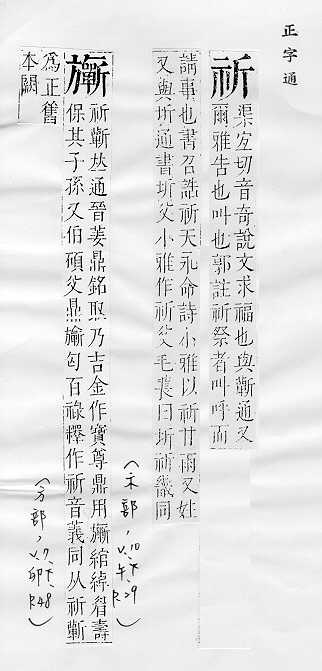 正字通
祈 渠宜切音奇說文求福也與蘄通又
爾雅告也叫也郭註祈祭者叫呼而
請事也書召誥祈天永命詩小雅以祈甘雨又姓
又與圻通書圻父小雅作祈父毛萇曰圻祈畿同
(示部, V.10, 午下, P.29)
祈蘄𠀤通晉姜鼎銘取乃吉金作寶尊鼎用綰綽眉壽
保其子孫又伯碩父鼎匃百祿釋作祈音義同从祈蘄
為正舊
本闕
(方部, V.7, 卯下, P.48)